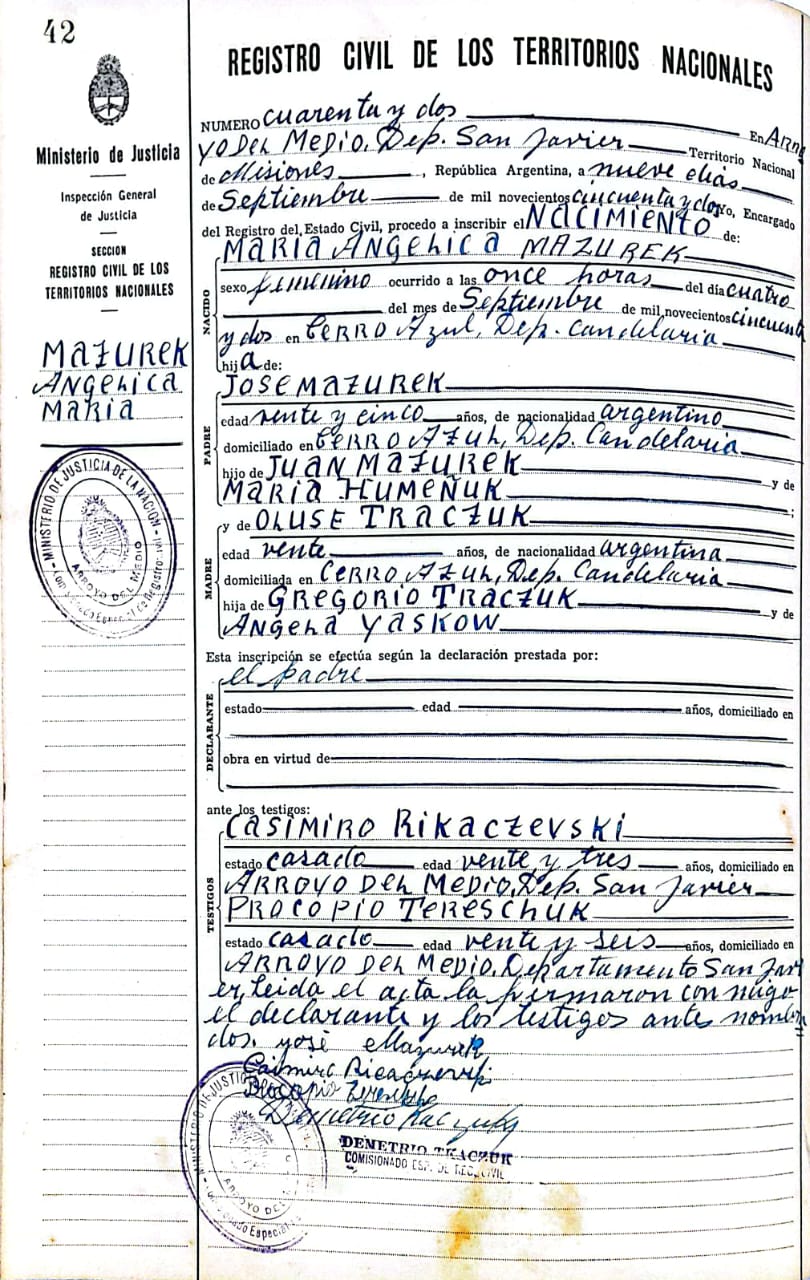 42
Ministerio de Justicia
Inspección General
de Justicia
SECCION
REGISTRO CIVIL DE LOS
TERRITORIOS NACIONALES
MAZUREK
ANGELICA
MARIA
MINISTERIO DE JUSTICIA DE LA NACION
ARROYO DEL MEDIO
REGISTRO CIVIL DE LOS TERRITORIOS NACIONALES
NUMERO cuarenta y dos En ARRO
YO DEL MEDIO, Dep. San Javier Territorio Nacional
de Misiones, República Argentina, a nueve dias
de Septiembre de mil novecientos cincuenta y dos Yo, Encargado
del Registro del Estado Civil, procedo a inscribir el NACIMIENTO de:
NACIDO
MARIA ANGELICA MAZUREK
sexo femenino ocurrido a las once horas del día cuatro
del mes de Septiembre de mil novecientos cincuenta
y dos en CERRO Azul, Dep. Candelaria
hija de:
PADRE
JOSE MAZUREK
edad vente y cinco años, de nacionalidad argentino
domiciliado en CERRO AZUL, Dep. Candelaria
hijo de JUAN MAZUREK y de
MARIA HUMEÑUK ;
MADRE
y de OLUSE TRACZUK
edad vente años, de nacionalidad argentina
domiciliada en CERRO AZUL, Dep. Candelaria
hija de GREGORIO TRACZUK y de
ANGELA YASKOW
Esta inscripción se efectúa según la declaración prestada por:
DECLARANTE
el padre
estado edad años, domiciliado en
obra en virtud de
ante los testigos:
TESTIGOS
CASIMIRO RIKACZEVSKI
estado casado edad vente y tres años, domiciliado en
ARROYO DEL MEDIO, Dep. San Javier
PROCOPIO TERESCHUK
estado casado edad vente y seis años, domiciliado en
ARROYO DEL MEDIO, Departamento San Javi
er, Leida el acta la firmaron con migo
el declarante y los testigos antes nombra
dos. José Mazurek
Demetrio Tkaczuk
DEMETRIO TKACZUK
COMISIONADO ESP. DE REG. CIVIL
MINISTERIO DE JUSTICIA
ARROYO DEL